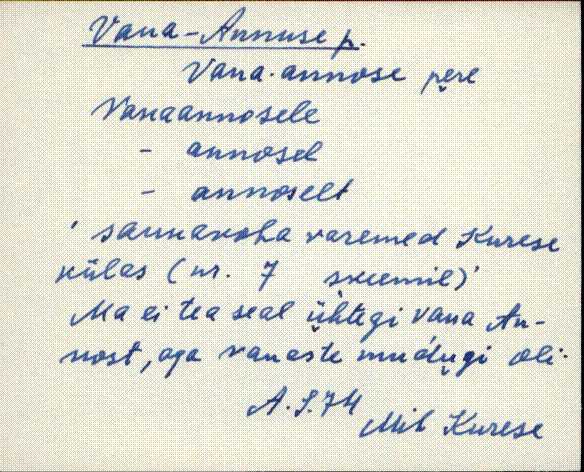 Vana-Annuse p.
Vana-annose pere
Vanaannosele
- annosel
- annoselt
' saunakoha varemed Kurese
külas (nr. 7 skeemil)'
Ma ei tea seal ühtegi Vana An-
nost, aga vanaste mudugi oli.
A.S.74 Mih Kurese